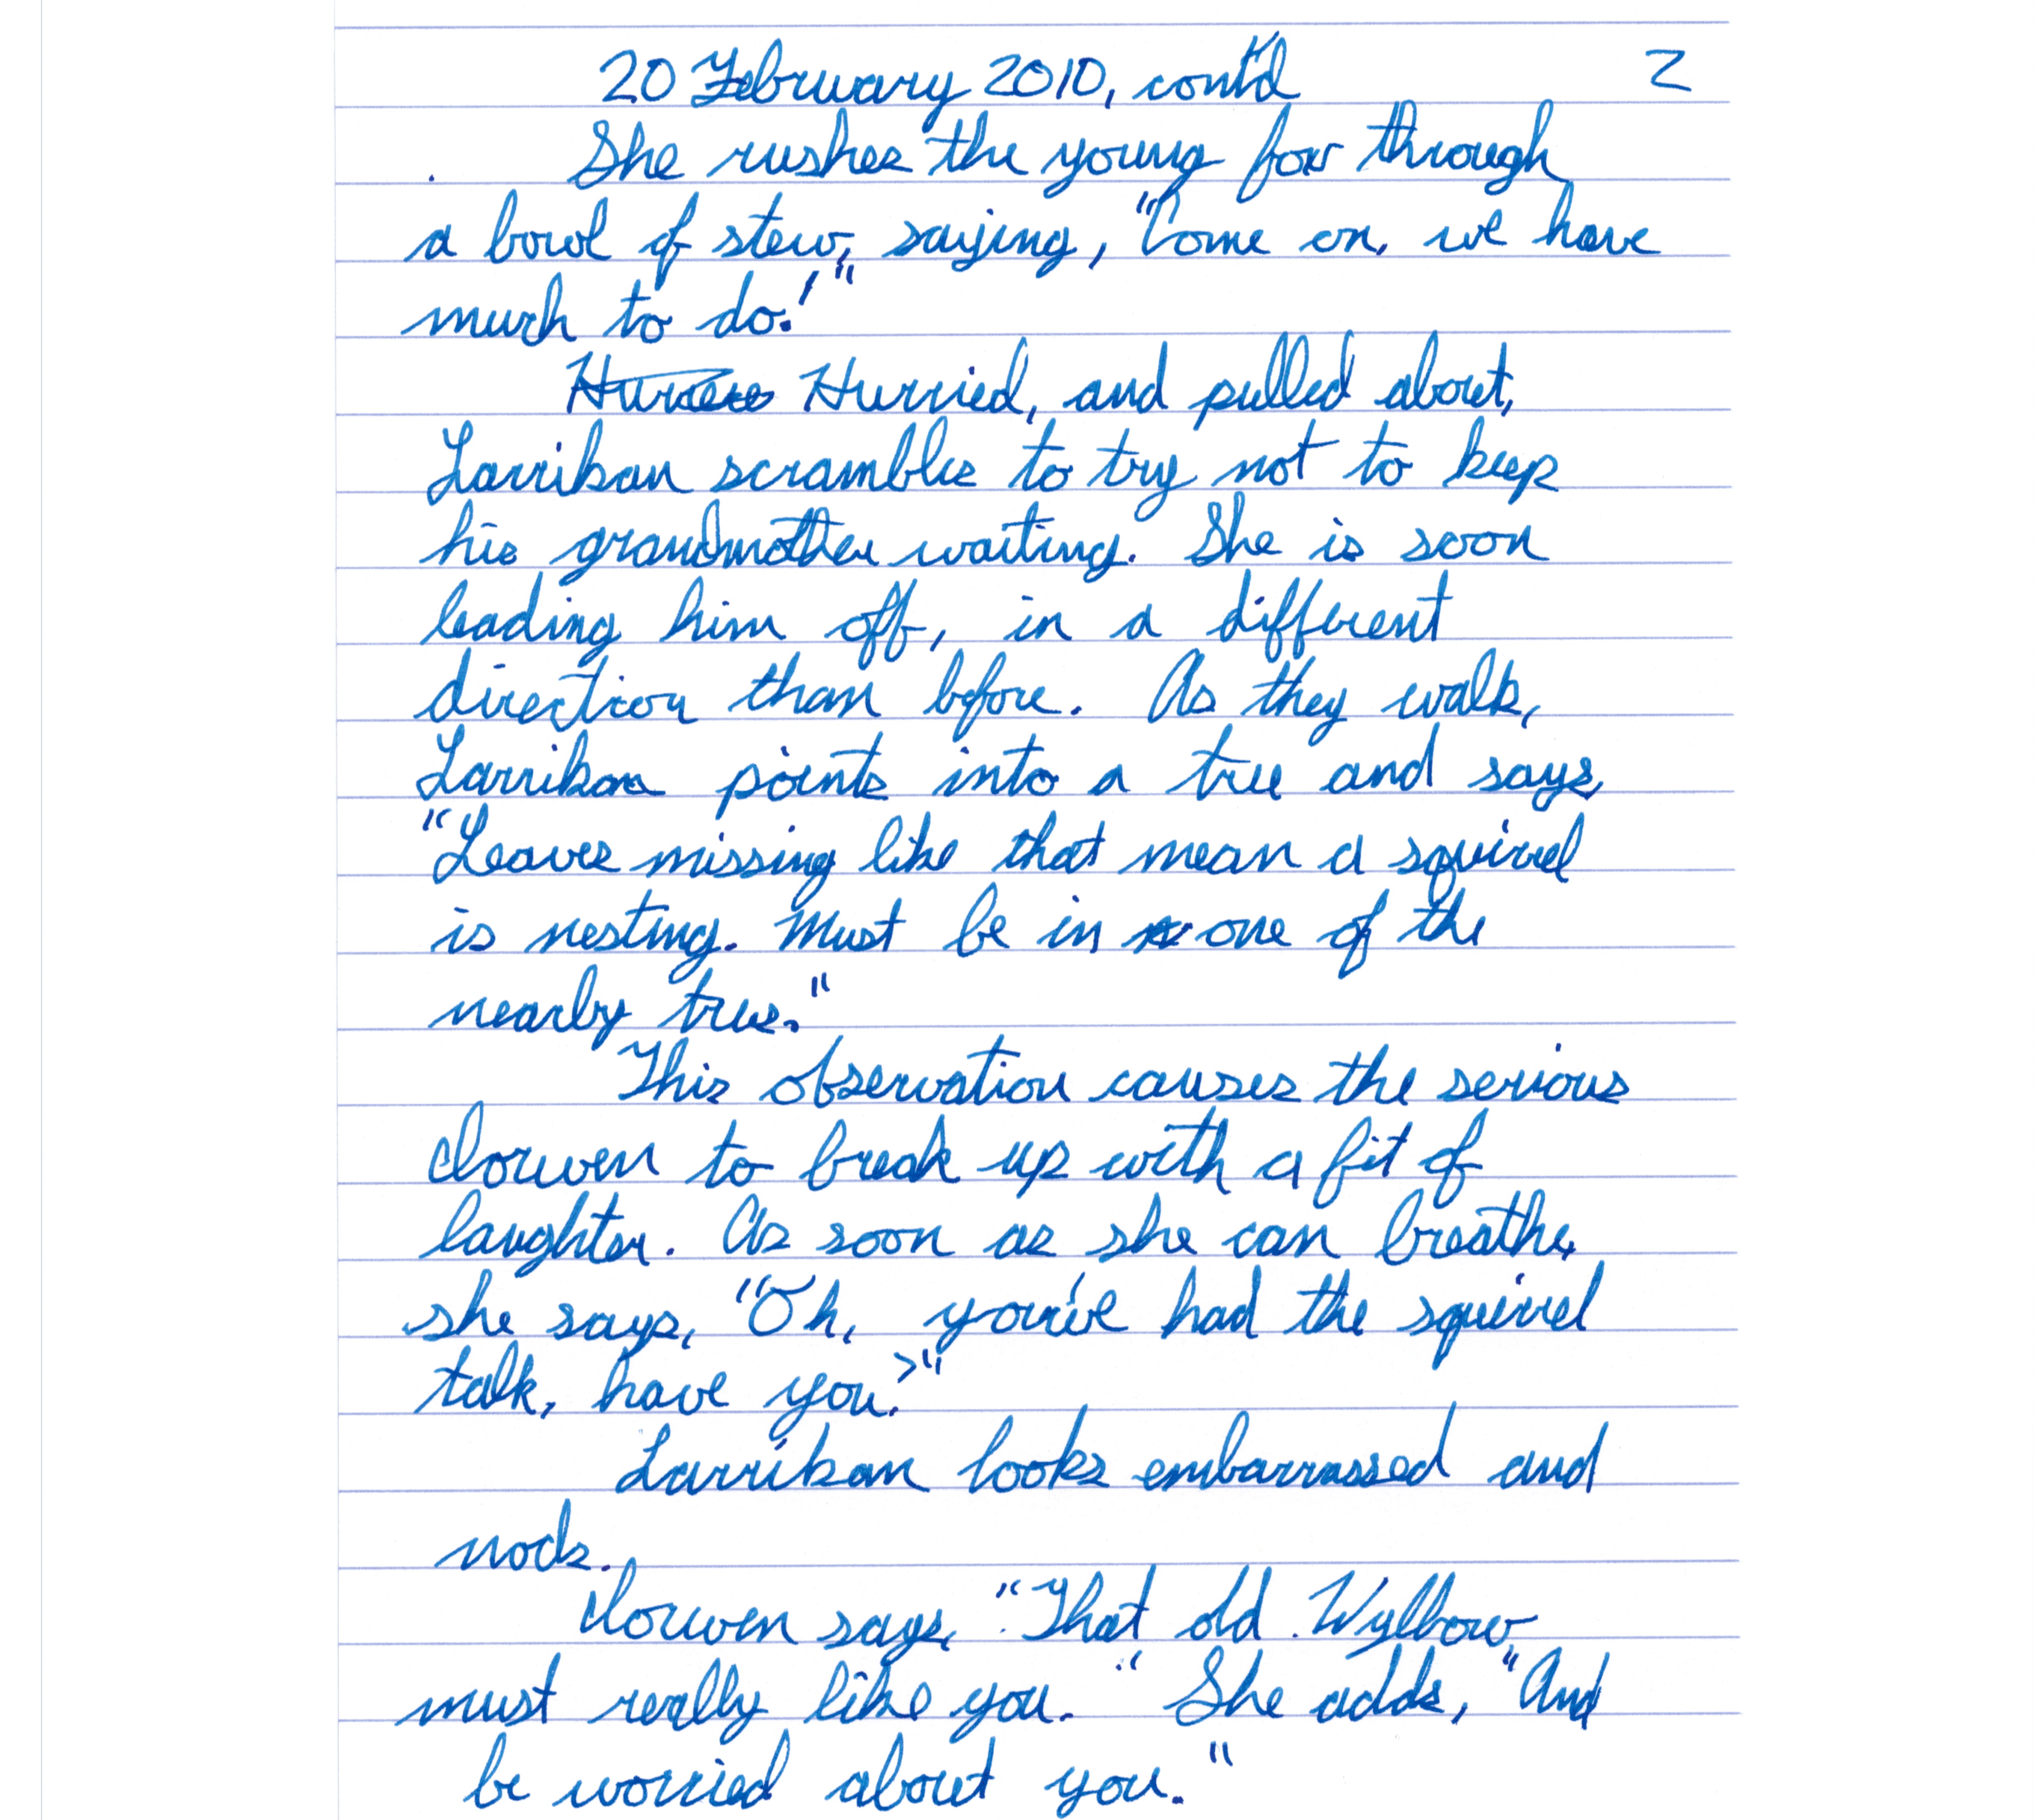 20 February 2010, cont'd 2
She rushes the young fox through
a bowl of stew, saying, "Come on, we have
much to do!"
Hurried, and pulled about,
Larrikan scrambles to try not to keep
his grandmother waiting. She is soon
leading him off, in a different
direction than before. As they walk,
Larrikan points into a tree and says,
"Leaves missing like that mean a squirrel
is nesting. Must be in one of the
nearby trees."
This observation causes the serious
Clorwen to break up with a fit of
laughter. As soon as she can breathe,
she says, "Oh, you've had the squirrel
talk, have you?"
Larrikan looks embarrassed and
nods.
Clorwen says, "That old Wylbow
must really like you." She adds, "And
be worried about you."